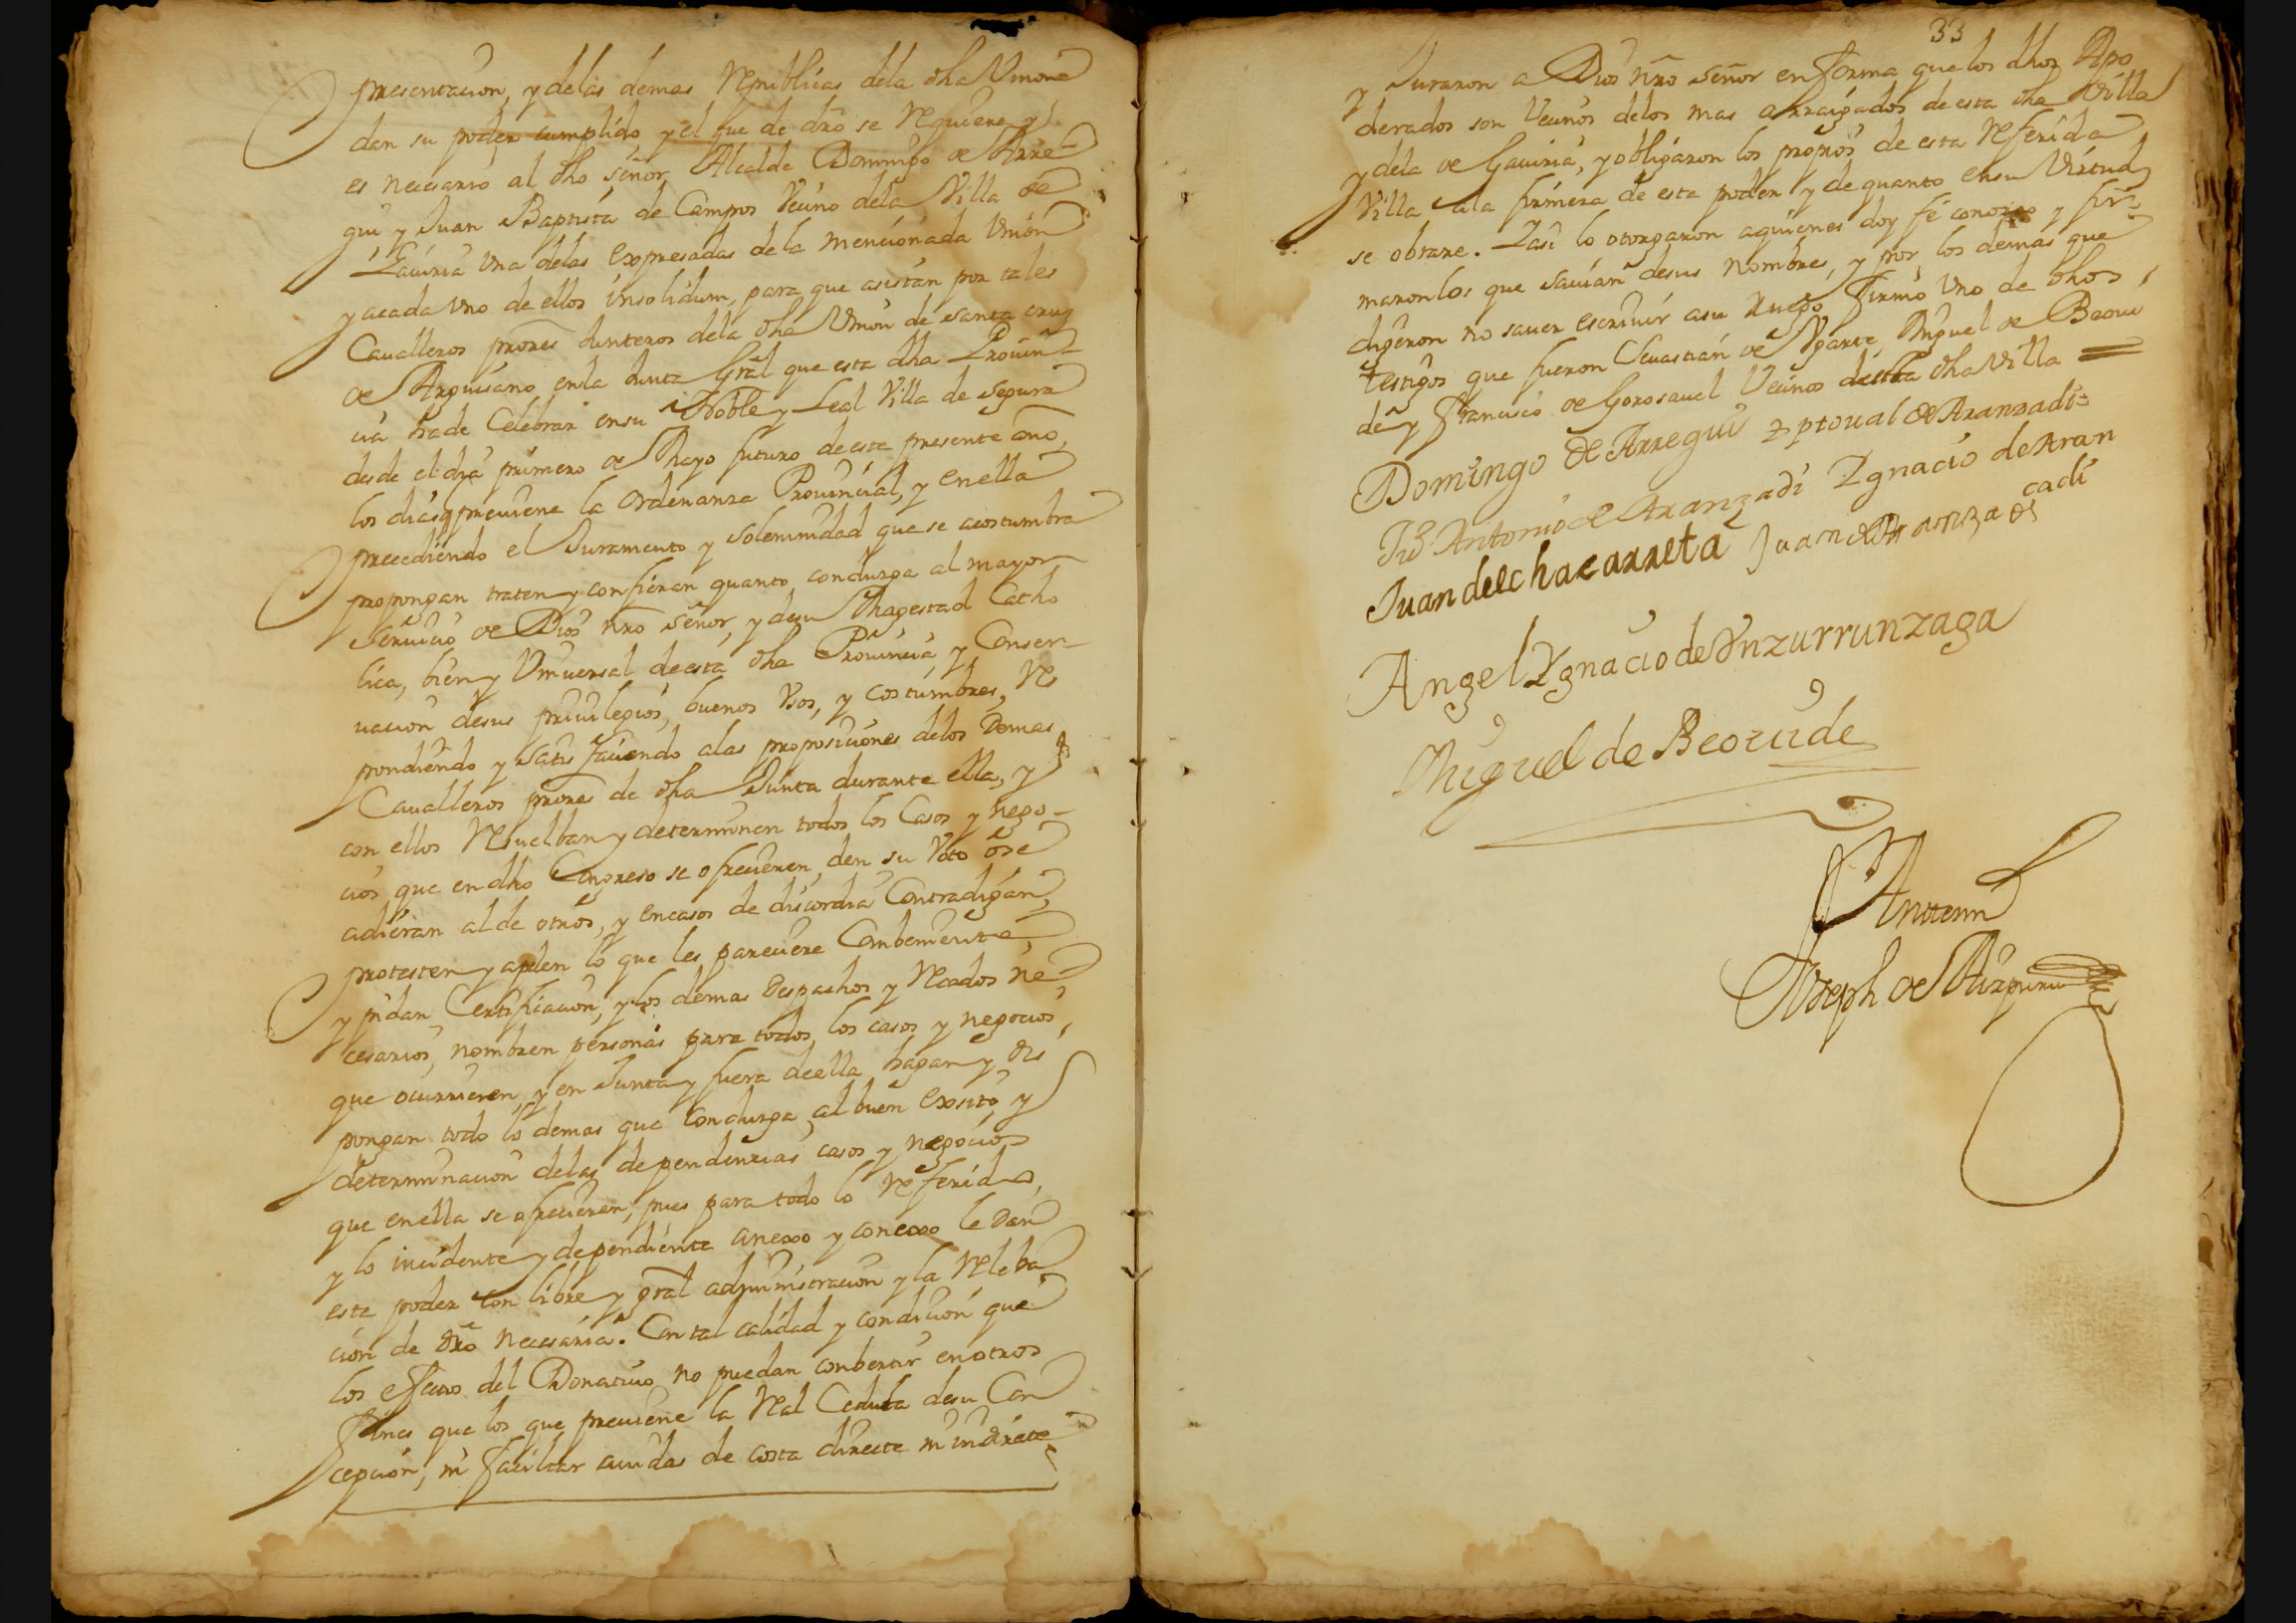 presentacion, y delas demas Republicas dela dha Union
dan su poder cumplido y el que de dro se Requiere y
es necesario al dho señor Alcalde Domingo de Arre-
gui y Juan Baptista de Campos Vecino dela Villa de
Gaviria una delas expresadas de la mencionada Union
y acada uno de ellos insolidum, para que asistan por tales
Cavalleros prores Junteros dela dha Union de santa cruz
de Arguisano enla Junta Gral que esta dha Provin-
cia hade Celebrar ensu Noble y Leal Villa de Segura
desde el dia primero de Mayo futuro deeste presente año,
los dias q previene la Ordenanza Provincial, y enella
precediendo el Juramento y solemnidad que se acostumbra
propongan traten y confieran quanto conduzga al mayor
servicio de Dios nro señor, y desu Magestad Catho
lica, bien y Vniversal deesta dha Provincia, y Conser-
vacion desus privilegios, buenos Vsos, y costumbres, Res
pondiendo y satisfaciendo alas proposiciones delos Demas
Cavalleros prores de dha Junta durante ella, y
con ellos Resuelban y determinen todos los Casos y nego-
cios que en dho Congreso se ofrecieren, den su Voto ose
adieran al de otros, y encasos de discordia Contradigan,
protesten y apelen lo que les pareciere Combeniente,
y pidan Certificacion, y los demas Despachos y Reados ne-
cesarios, nombren personas para todos los casos y negocios,
que ocurrieren, y en Junta y fuera deella hagan y dis
pongan todo lo demas que Conduzga al buen exsito y
determinacion delas dependencias casos y negocios
que enella se ofrecieren, pues para todo lo Referido,
y lo incidente y dependiente anexo y conexo le Dan
este poder con libre y gral administracion y la Releba-
cion de dro necesaria. Con tal calidad y condicion que
los efectos del Donativo no puedan conbertir enotros
fines que los que previene la Real Cedula desu Con
cepcion, ni facilitar aiudas de costa directe ni indirecte
33
y Juraron a Dios nro señor en forma que los dhos Apo
derados son Vecinos delos mas arraigados de esta dha Villa
y dela de Gaviria, y obligaron los propios de esta Referida
Villa ala firmeza de este poder y de quanto ensu Virtud
se obrare. Y asi lo otorgaron aquienes doy fé conozco y fir-
maron los que savian desus nombres, y por los demas que
digeron no saver escrivir asu ruego firmó Uno de dhos
testigos que fueron Sevastian de Vgarte, Miguel de Beovi
de y Francisco de Gorosavel Vecinos desta dha Villa =
Domingo de Arregui
Xptoual de Aranzadi
Juo Antonio de Aranzadi
Ygnacio de Aran
cadi
Juan de echacarreta
Juan de Aranzadi
Angel Ygnacio de Vnzurrunzaga
Miguel de Beovide
Ante mi
Joseph de Aizpuru